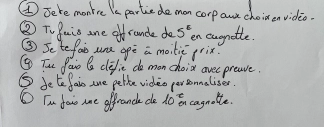 ① Je te montre la partie de mon corp aux choix en vidéo.
② Tu fais une offrande de 5€ en cagnotte.
③ Je te fais une opé à moitié prix.
④ Tu fais le défie de mon choix avec preuve.
⑤ Je te fais une petite vidéo personnaliser.
⑥ Tu fais une offrande de 10€ en cagnotte.